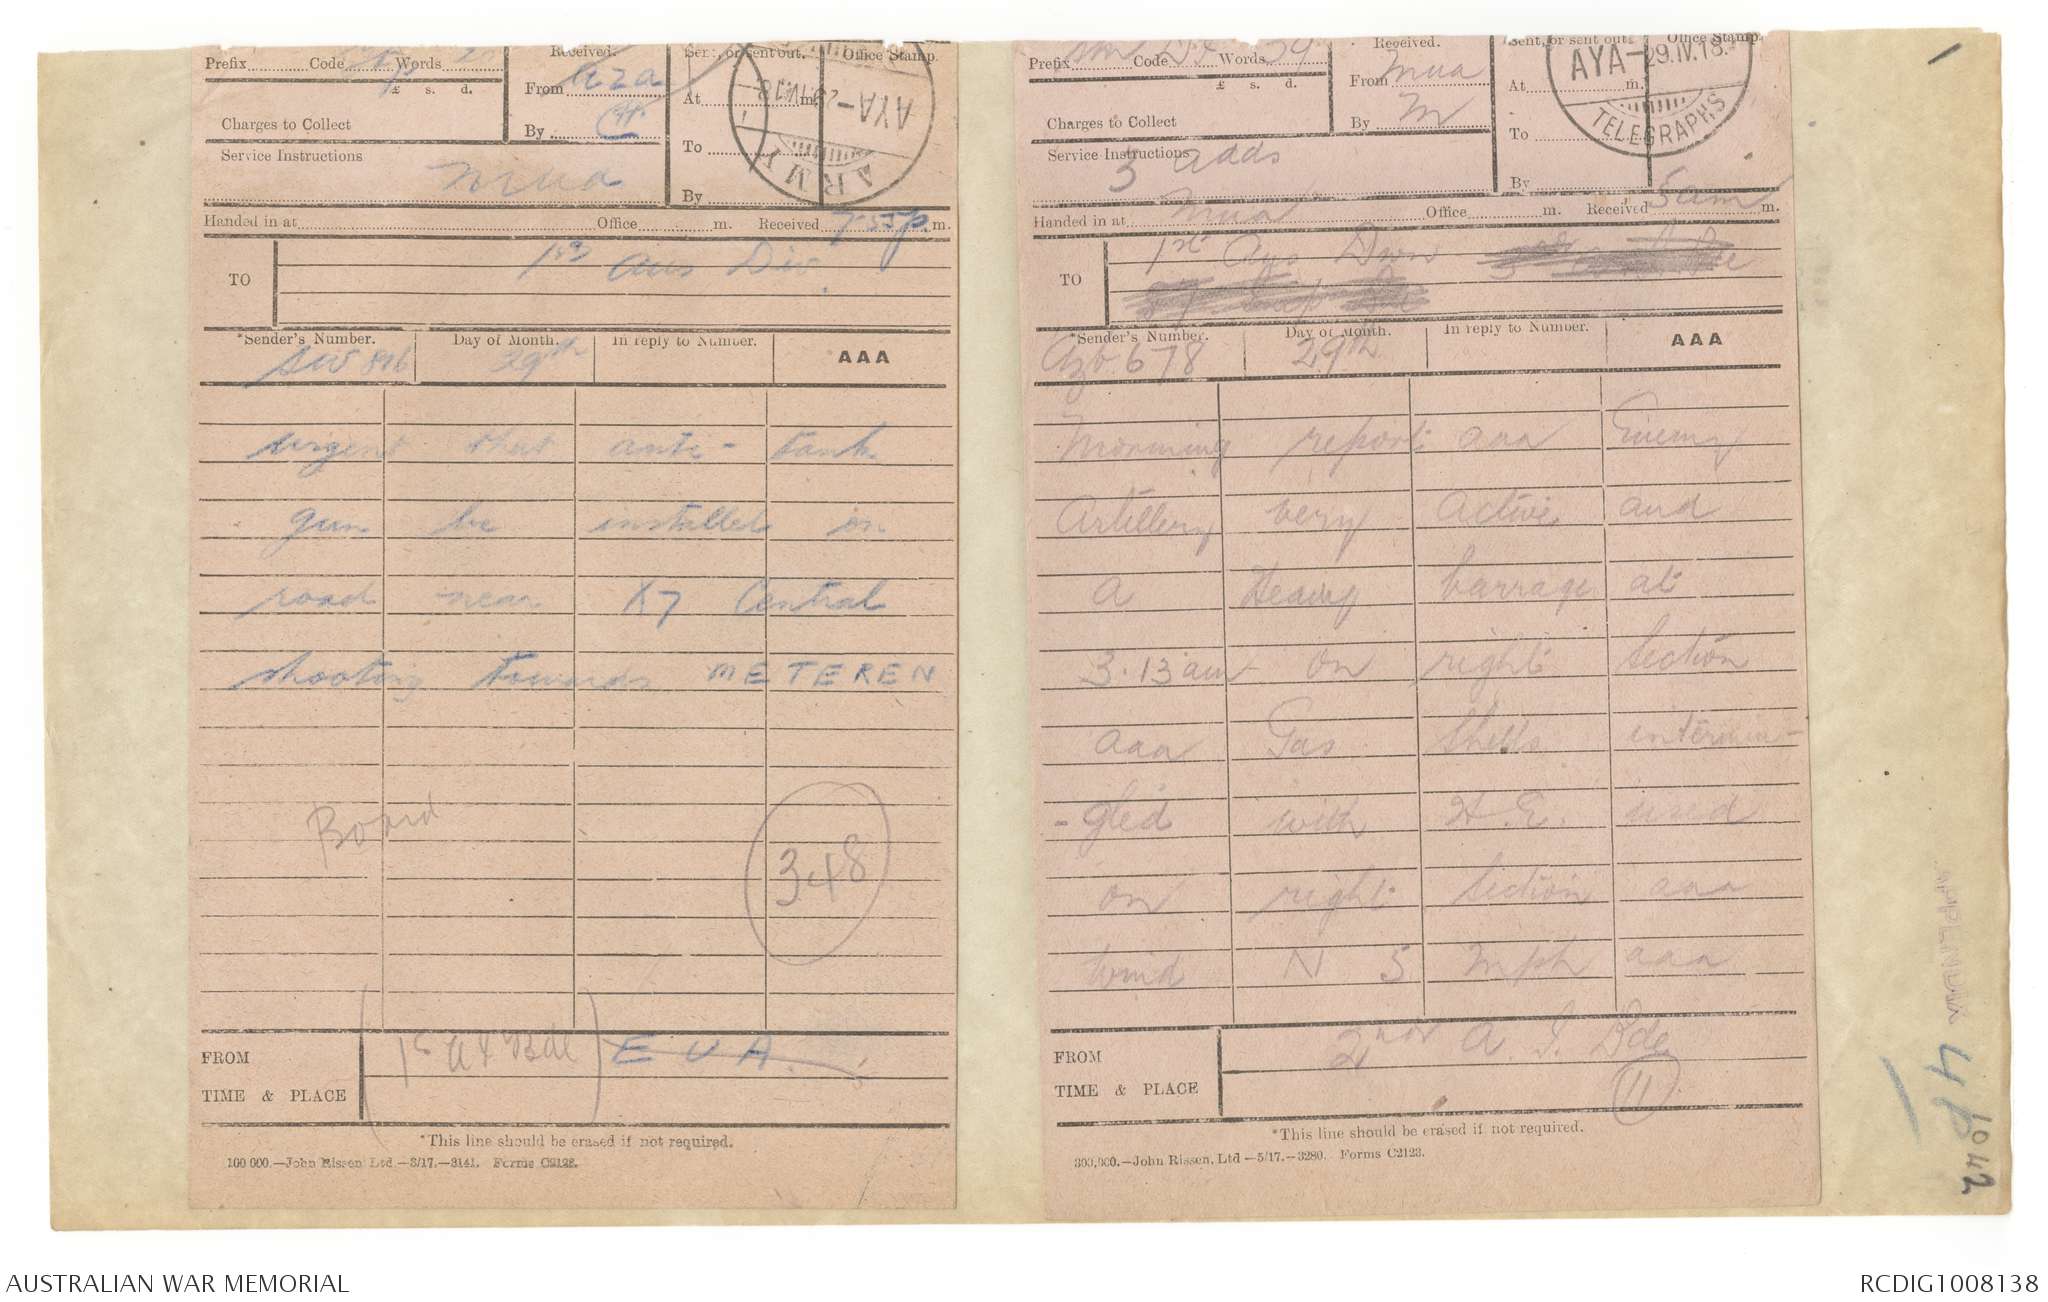 Prefix Code Words
£ s. d.
Charges to Collect
Received.
From aza
By
Sent, or sent out.
At m.
To
By
Office Stamp.
AYA-29.IV.18
ARMY
Service Instructions
mua
Handed in at Office m. Received 7-55p m.
TO 1st Aus Div.
*Sender's Number. Day of Month. In reply to Number. AAA
29th
urgent that anti- tank
gun be installed on
road near X7 Central
shooting towards METEREN
Board
348
FROM (1st A I Bde) EUA.
TIME & PLACE
*This line should be erased if not required.
100 000.—John Rissen Ltd.—3/17.—3141. Forms C2123.
Prefix sm Code Words 39
£ s. d.
Charges to Collect
Received.
From mua
By M
Sent, or sent out.
At m.
To
By
Office Stamp.
AYA-29.IV.18.
TELEGRAPHS
Service Instructions
3 adds
Handed in at mua Office m. Received 5am m.
TO 1st Divn
*Sender's Number. Day of Month. In reply to Number. AAA
678 29th
Morning report aaa Enemy
Artillery very Active and
a Heavy barrage at
3.13 am on right Section
aaa Gas Shells intermin-
-gled with H.E. used
on right Section aaa
wind N 5 mph aaa
FROM 2nd A. I. Bde
11
TIME & PLACE
*This line should be erased if not required.
300,000.—John Rissen, Ltd—5/17.—3280. Forms C2123.
1042
AUSTRALIAN WAR MEMORIAL
RCDIG1008138